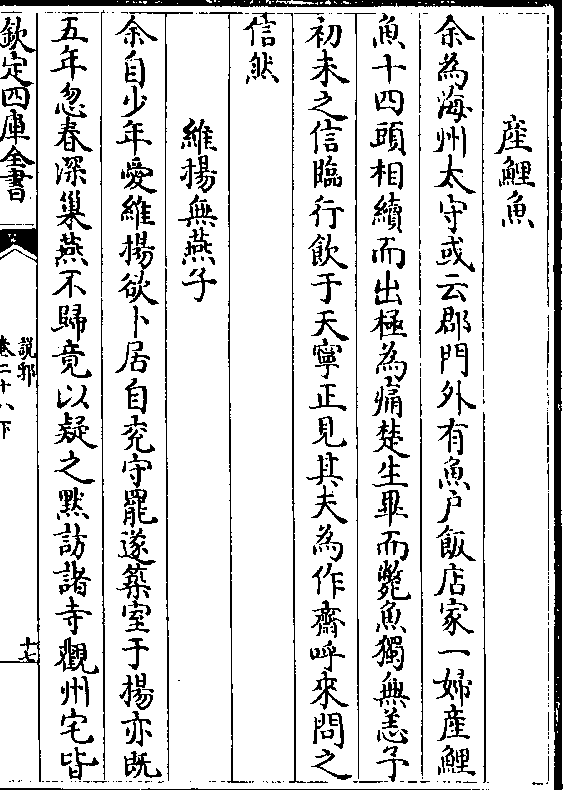 産鯉魚
余為海州太守或云郡門外有魚户飯店家一婦産鯉
魚十四頭相續而出極為痛楚生畢而斃魚獨無恙予
初未之信臨行飲于天寧正見其夫為作齋呼來問之
信然
維揚無燕子
余自少年愛維揚欲卜居自兖守罷遂築室于揚亦既
五年忽春深巢燕不歸竟以疑之黙訪諸寺觀州宅皆
欽定四庫全書
説郛
卷二十八下
十七